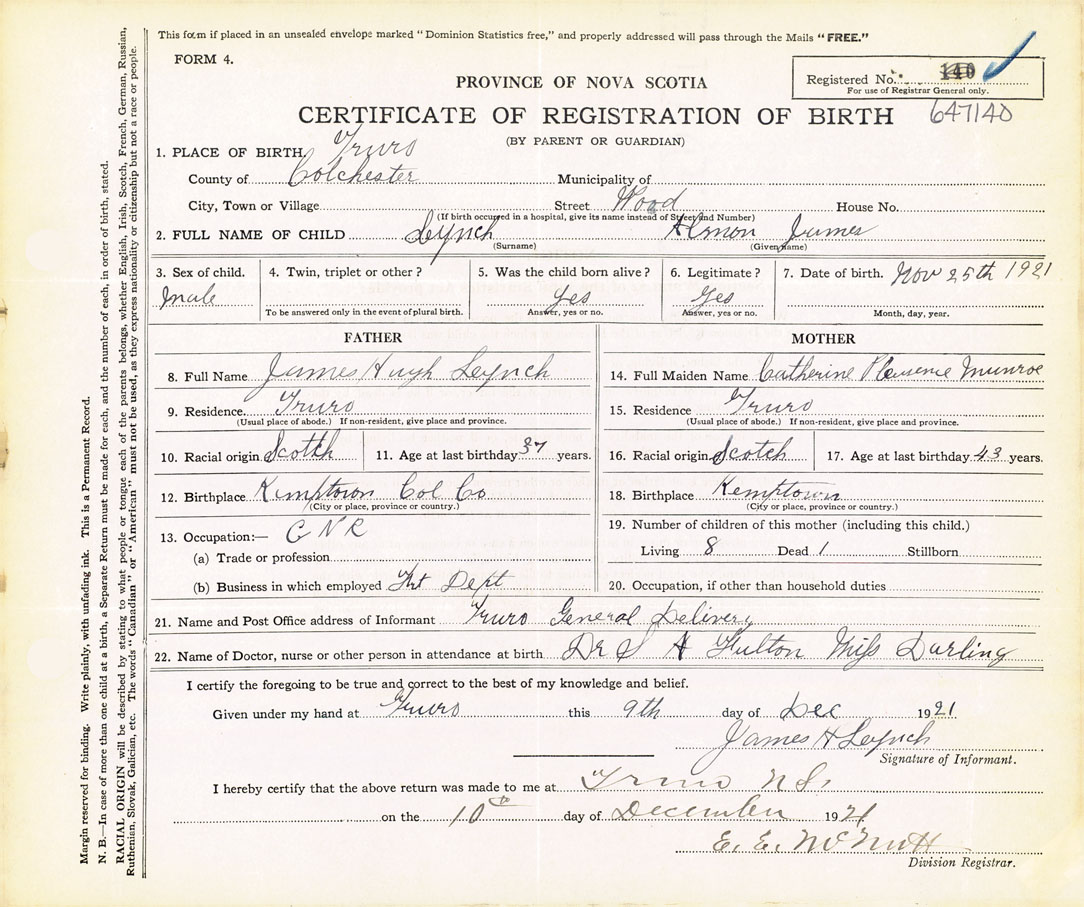 This form if placed in an unsealed envelope marked "Dominion Statistics free," and properly addressed will pass through the Mails "FREE."
FORM 4.
Registered No. 140
For use of Registrar General only.
PROVINCE OF NOVA SCOTIA
CERTIFICATE OF REGISTRATION OF BIRTH 647140
(BY PARENT OR GUARDIAN)
1. PLACE OF BIRTH Truro
County of Colchester Municipality of
City, Town or Village Street Wood House No.
(If birth occurred in a hospital, give its name instead of Street and Number)
2. FULL NAME OF CHILD Leynch Almon James
(Surname) (Given name)
3. Sex of child. 4. Twin, triplet or other? 5. Was the child born alive? 6. Legitimate? 7. Date of birth. Nov 25th 1921
male Yes Yes
To be answered only in the event of plural birth. Answer, yes or no. Answer, yes or no. Month, day, year.
FATHER
8. Full Name James Hugh Leynch
9. Residence. Truro
(Usual place of abode.) If non-resident, give place and province.
10. Racial origin Scotch 11. Age at last birthday 37 years.
12. Birthplace Kemptown Col Co
(City or place, province or country.)
13. Occupation:— C N R
(a) Trade or profession
(b) Business in which employed Frt Dept
MOTHER
14. Full Maiden Name Catherine Munroe
15. Residence Truro
(Usual place of abode.) If non-resident, give place and province.
16. Racial origin Scotch 17. Age at last birthday 43 years.
18. Birthplace Kemptown
(City or place, province or country.)
19. Number of children of this mother (including this child.)
Living 8 Dead 1 Stillborn
20. Occupation, if other than household duties
21. Name and Post Office address of Informant Truro General Delivery
22. Name of Doctor, nurse or other person in attendance at birth Dr S A Fulton Miss Darling
I certify the foregoing to be true and correct to the best of my knowledge and belief.
Given under my hand at Truro this 9th day of Dec 1921
James H Leynch
Signature of Informant.
I hereby certify that the above return was made to me at Truro N S.
on the 10th day of December 1921
E. E. McNutt
Division Registrar.
Margin reserved for binding. Write plainly, with unfading ink. This is a Permanent Record.
N. B.—In case of more than one child at a birth, a Separate Return must be made for each, and the number of each, in order of birth, stated.
RACIAL ORIGIN will be described by stating to what people or tongue each of the parents belongs, whether English, Irish, Scotch, French, German, Russian,
Ruthenian, Slovak, Galician, etc. The words "Canadian" or "American" must not be used, as they express nationality or citizenship but not a race or people.